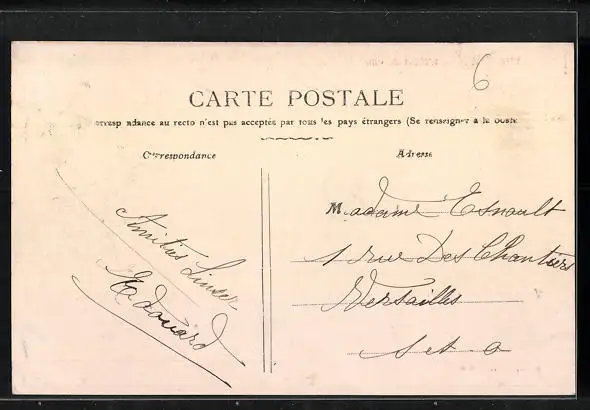 6
CARTE POSTALE
correspondance au recto n'est pas acceptée par tous les pays étrangers (Se renseigner à la poste
Correspondance
Adresse
Amitiés
Edouard
Madame Esnault
1 rue Des Chantiers
Versailles
S et O